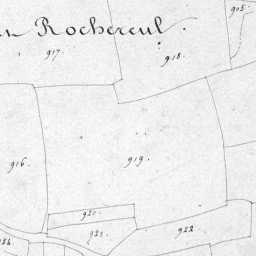 905
Rochereul.
917.
918.
916.
919.
920.
921.
922.